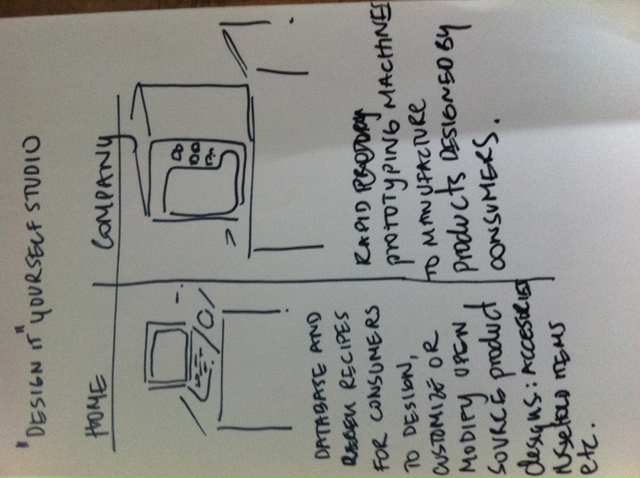 "DESIGN IT" YOURSELF STUDIO
HOME
COMPANY
DATABASE AND
RECIPES
FOR CONSUMERS
TO DESIGN,
CUSTOMIZE OR
MODIFY OPEN
SOURCE PRODUCT
designs: ACCESSORIES
ITEMS
etc.
RAPID
PROTOTYPING MACHINES
TO MANUFACTURE
PRODUCTS DESIGNED BY
CONSUMERS.